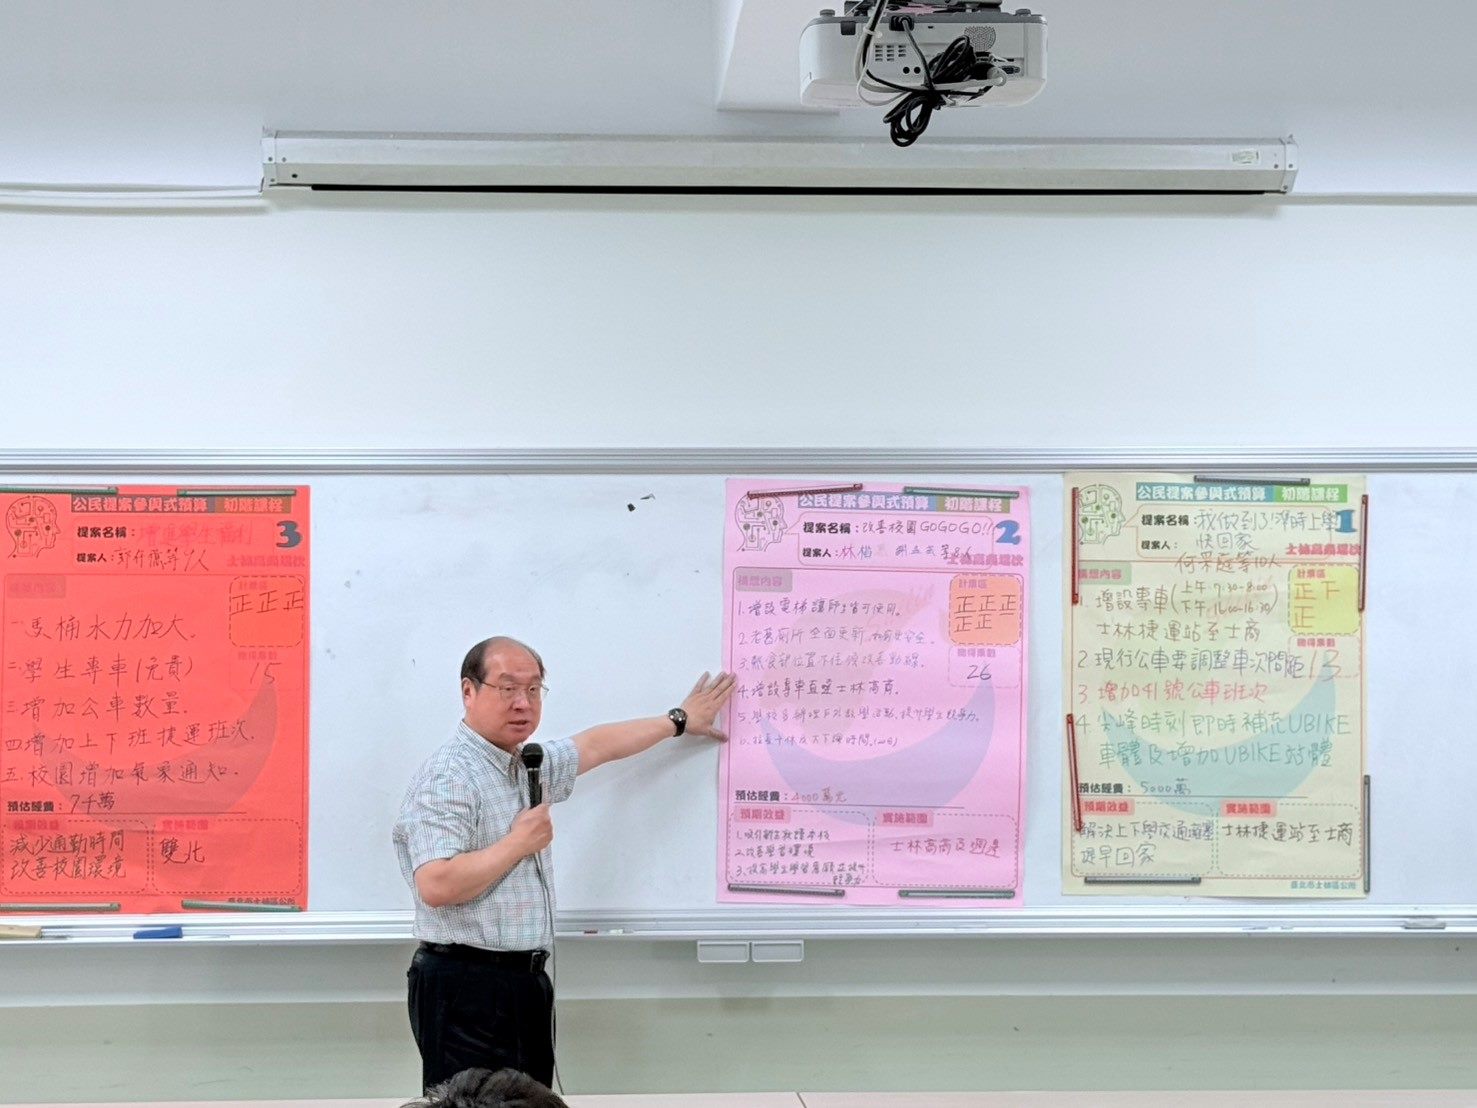 公民提案參與式預算 初階課程
提案名稱：增進學生福利
3
提案人：等9人
士林高商場次
構想內容
計票區
正正正
總得票數
15
馬桶水力加大.
二.學生專車(免費)
三增加公車數量.
四增加上下班捷運班次.
五.校園增加氣象通知.
預估經費：7千萬
預期效益
減少通勤時間
改善校園環境
實施範圍
雙北
臺北市士林區公所
公民提案參與式預算 初階課程
提案名稱：改善校園GOGOGO!!
2
提案人：林
士林高商場次
構想內容
計票區
正正正
正正
總得票數
26
1.增設電梯讓師生皆可使用。
2.老舊廁所全面更新
3.熱食部位置下往後改善動線.
4.增設專車直達士林高商.
5.學校多辦理戶外教學活動,提升學生競爭力.
預估經費：4000萬元
預期效益
1.吸引新生就讀本校
2.改善學習環境
實施範圍
士林高商及週邊
公民提案參與式預算 初階課程
提案名稱：我做到了!準時上學
快回家
1
提案人：何采庭等10人
士林高商場次
構想內容
計票區
正下
正
總得票數
13
1.增設專車(上午7:30-8:00
下午16:00-16:30)
士林捷運站至士商
2.現行公車要調整車次間距
3.增加41號公車班次
4.尖峰時刻即時補充UBIKE
車體及增加UBIKE站體
預估經費：5000萬
預期效益
解決上下學交通擁塞
提早回家
實施範圍
士林捷運站至士商
臺北市士林區公所